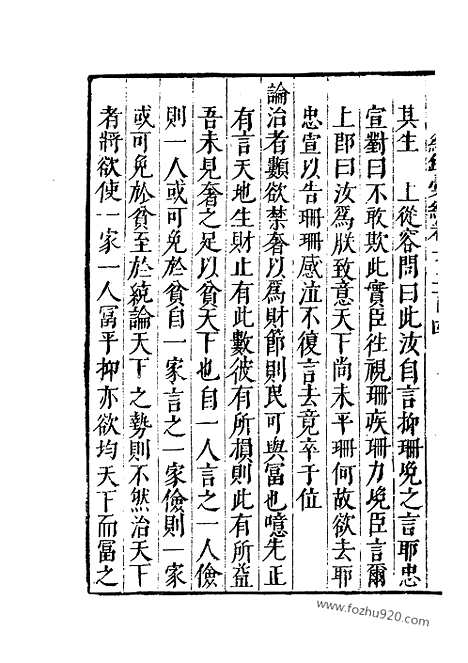 其生　上從容問曰此汝自言抑珊晩之言耶忠
宣對曰不敢欺此實臣徃視珊疾珊力晩臣言爾
上郎曰汝爲朕致意天下尚未平珊何故欲去耶
忠宣以告珊珊感泣不復言去竟卒于位
論治者類欲禁奢以爲財節則民可與冨也噫先正
有言天地生財止有此數彼有所損則此有所益
吾未見奢之足以貧天下也自一人言之一人儉
則一人或可免於貧自一家言之一家儉則一家
或可免於貧至於統論天下之勢則不然治天下
者將欲使一家一人冨乎抑亦欲均天下而冨之
www.fozhu920.com